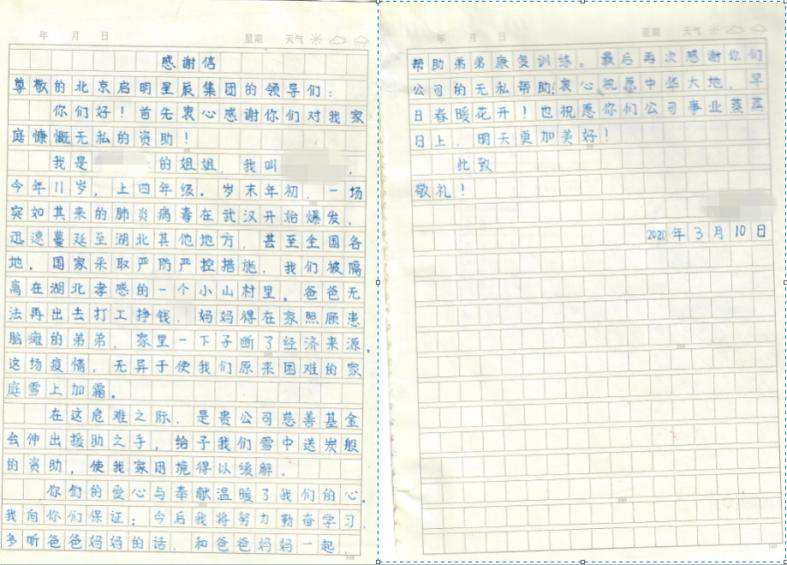 年 月 日 星期 天气
感谢信
尊敬的北京启明星辰集团的领导们：
你们好！首先衷心感谢你们对我家
庭慷慨无私的资助！
我是 的姐姐，我叫 ，
今年11岁，上四年级。岁末年初，一场
突如其来的肺炎病毒在武汉开始爆发，
迅速蔓延至湖北其他地方，甚至全国各
地。国家采取严防严控措施，我们被隔
离在湖北孝感的一个小山村里。爸爸无
法再出去打工挣钱，妈妈得在家照顾患
脑瘫的弟弟，家里一下子断了经济来源。
这场疫情，无异于使我们原来困难的家
庭雪上加霜。
在这危难之际，是贵公司慈善基金
会伸出援助之手，给予我们雪中送炭般
的资助，使我家困境得以缓解。
你们的爱心与奉献温暖了我们的心。
我向你们保证：今后我将努力勤奋学习，
多听爸爸妈妈的话，和爸爸妈妈一起
年 月 日 星期 天气
帮助弟弟康复训练。最后再次感谢你们
公司的无私帮助，衷心祝愿中华大地，早
日春暖花开！也祝愿你们公司事业蒸蒸
日上，明天更加美好！
此致
敬礼！
2020年3月10日